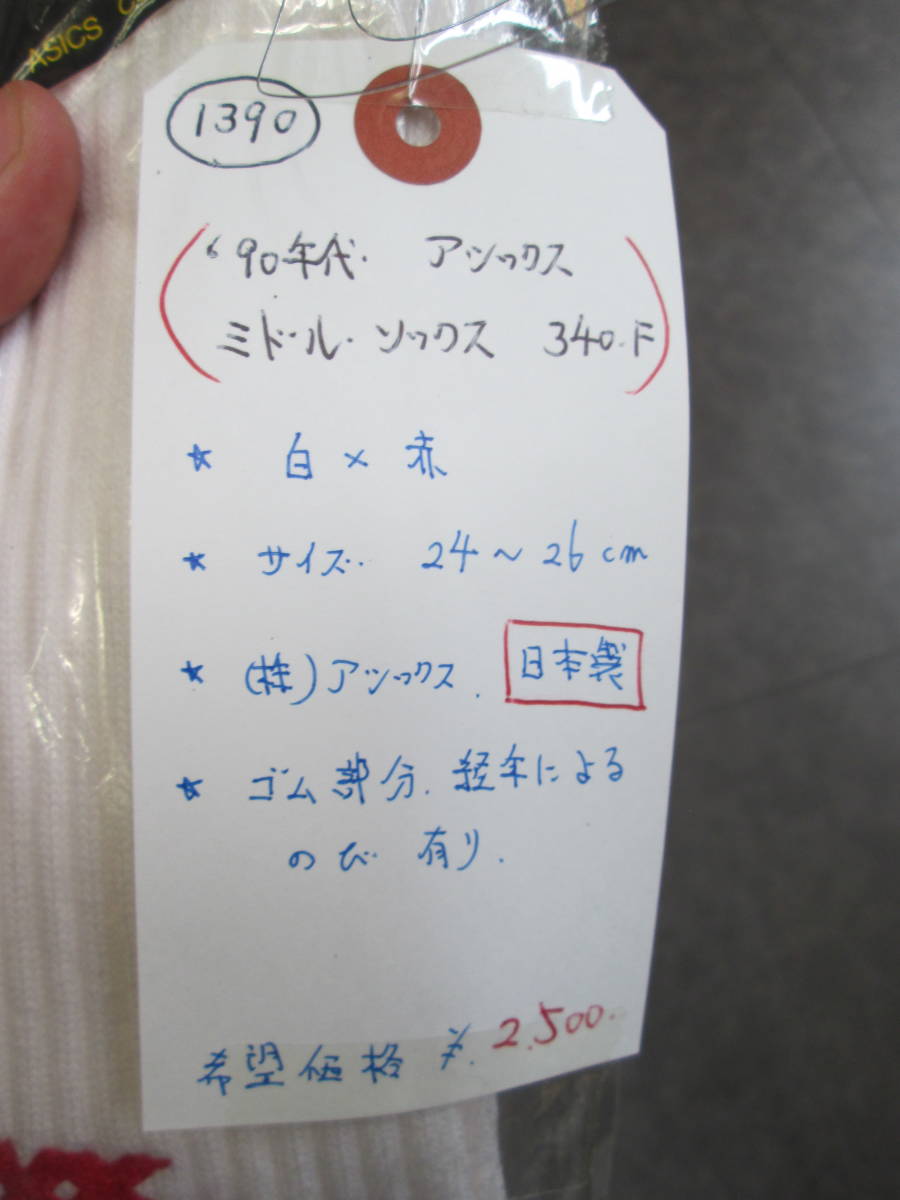 ASICS C
1390
'90年代. アシックス
ミドル・ソックス 340.F
★ 白×赤
★ サイズ.. 24～26cm
★ (株)アシックス. 日本製
★ ゴム部分.経年による
のび 有り.
希望価格 ¥.2.500.